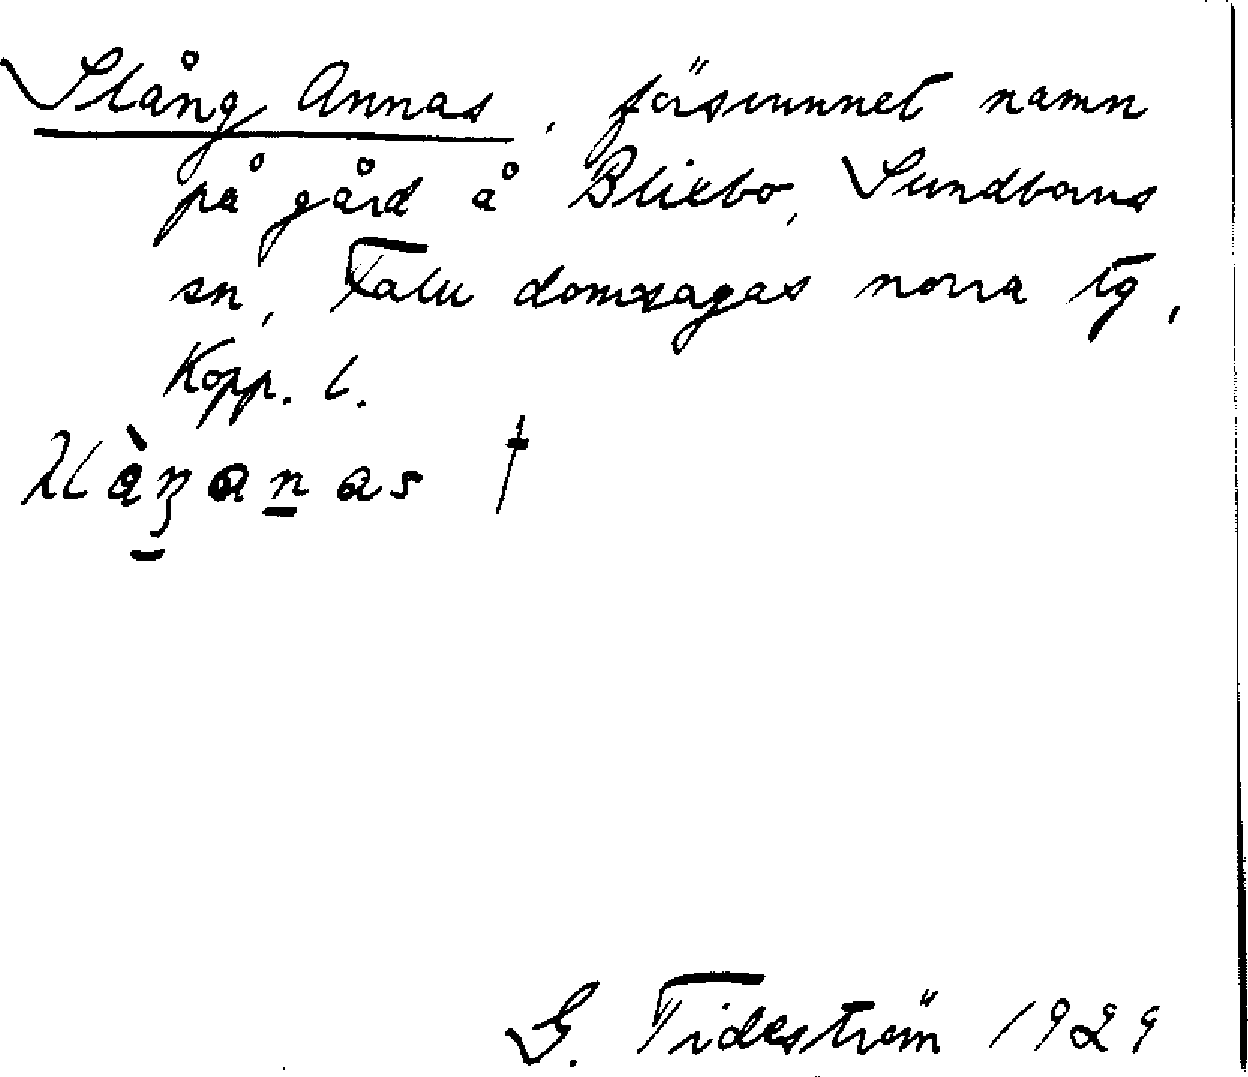 Slång Annas, försvunnet namn
på gård å Blixbo, Sundborns
sn, Falu domsagas norra tg,
Kopp. l.
†
G. Tideström 1929